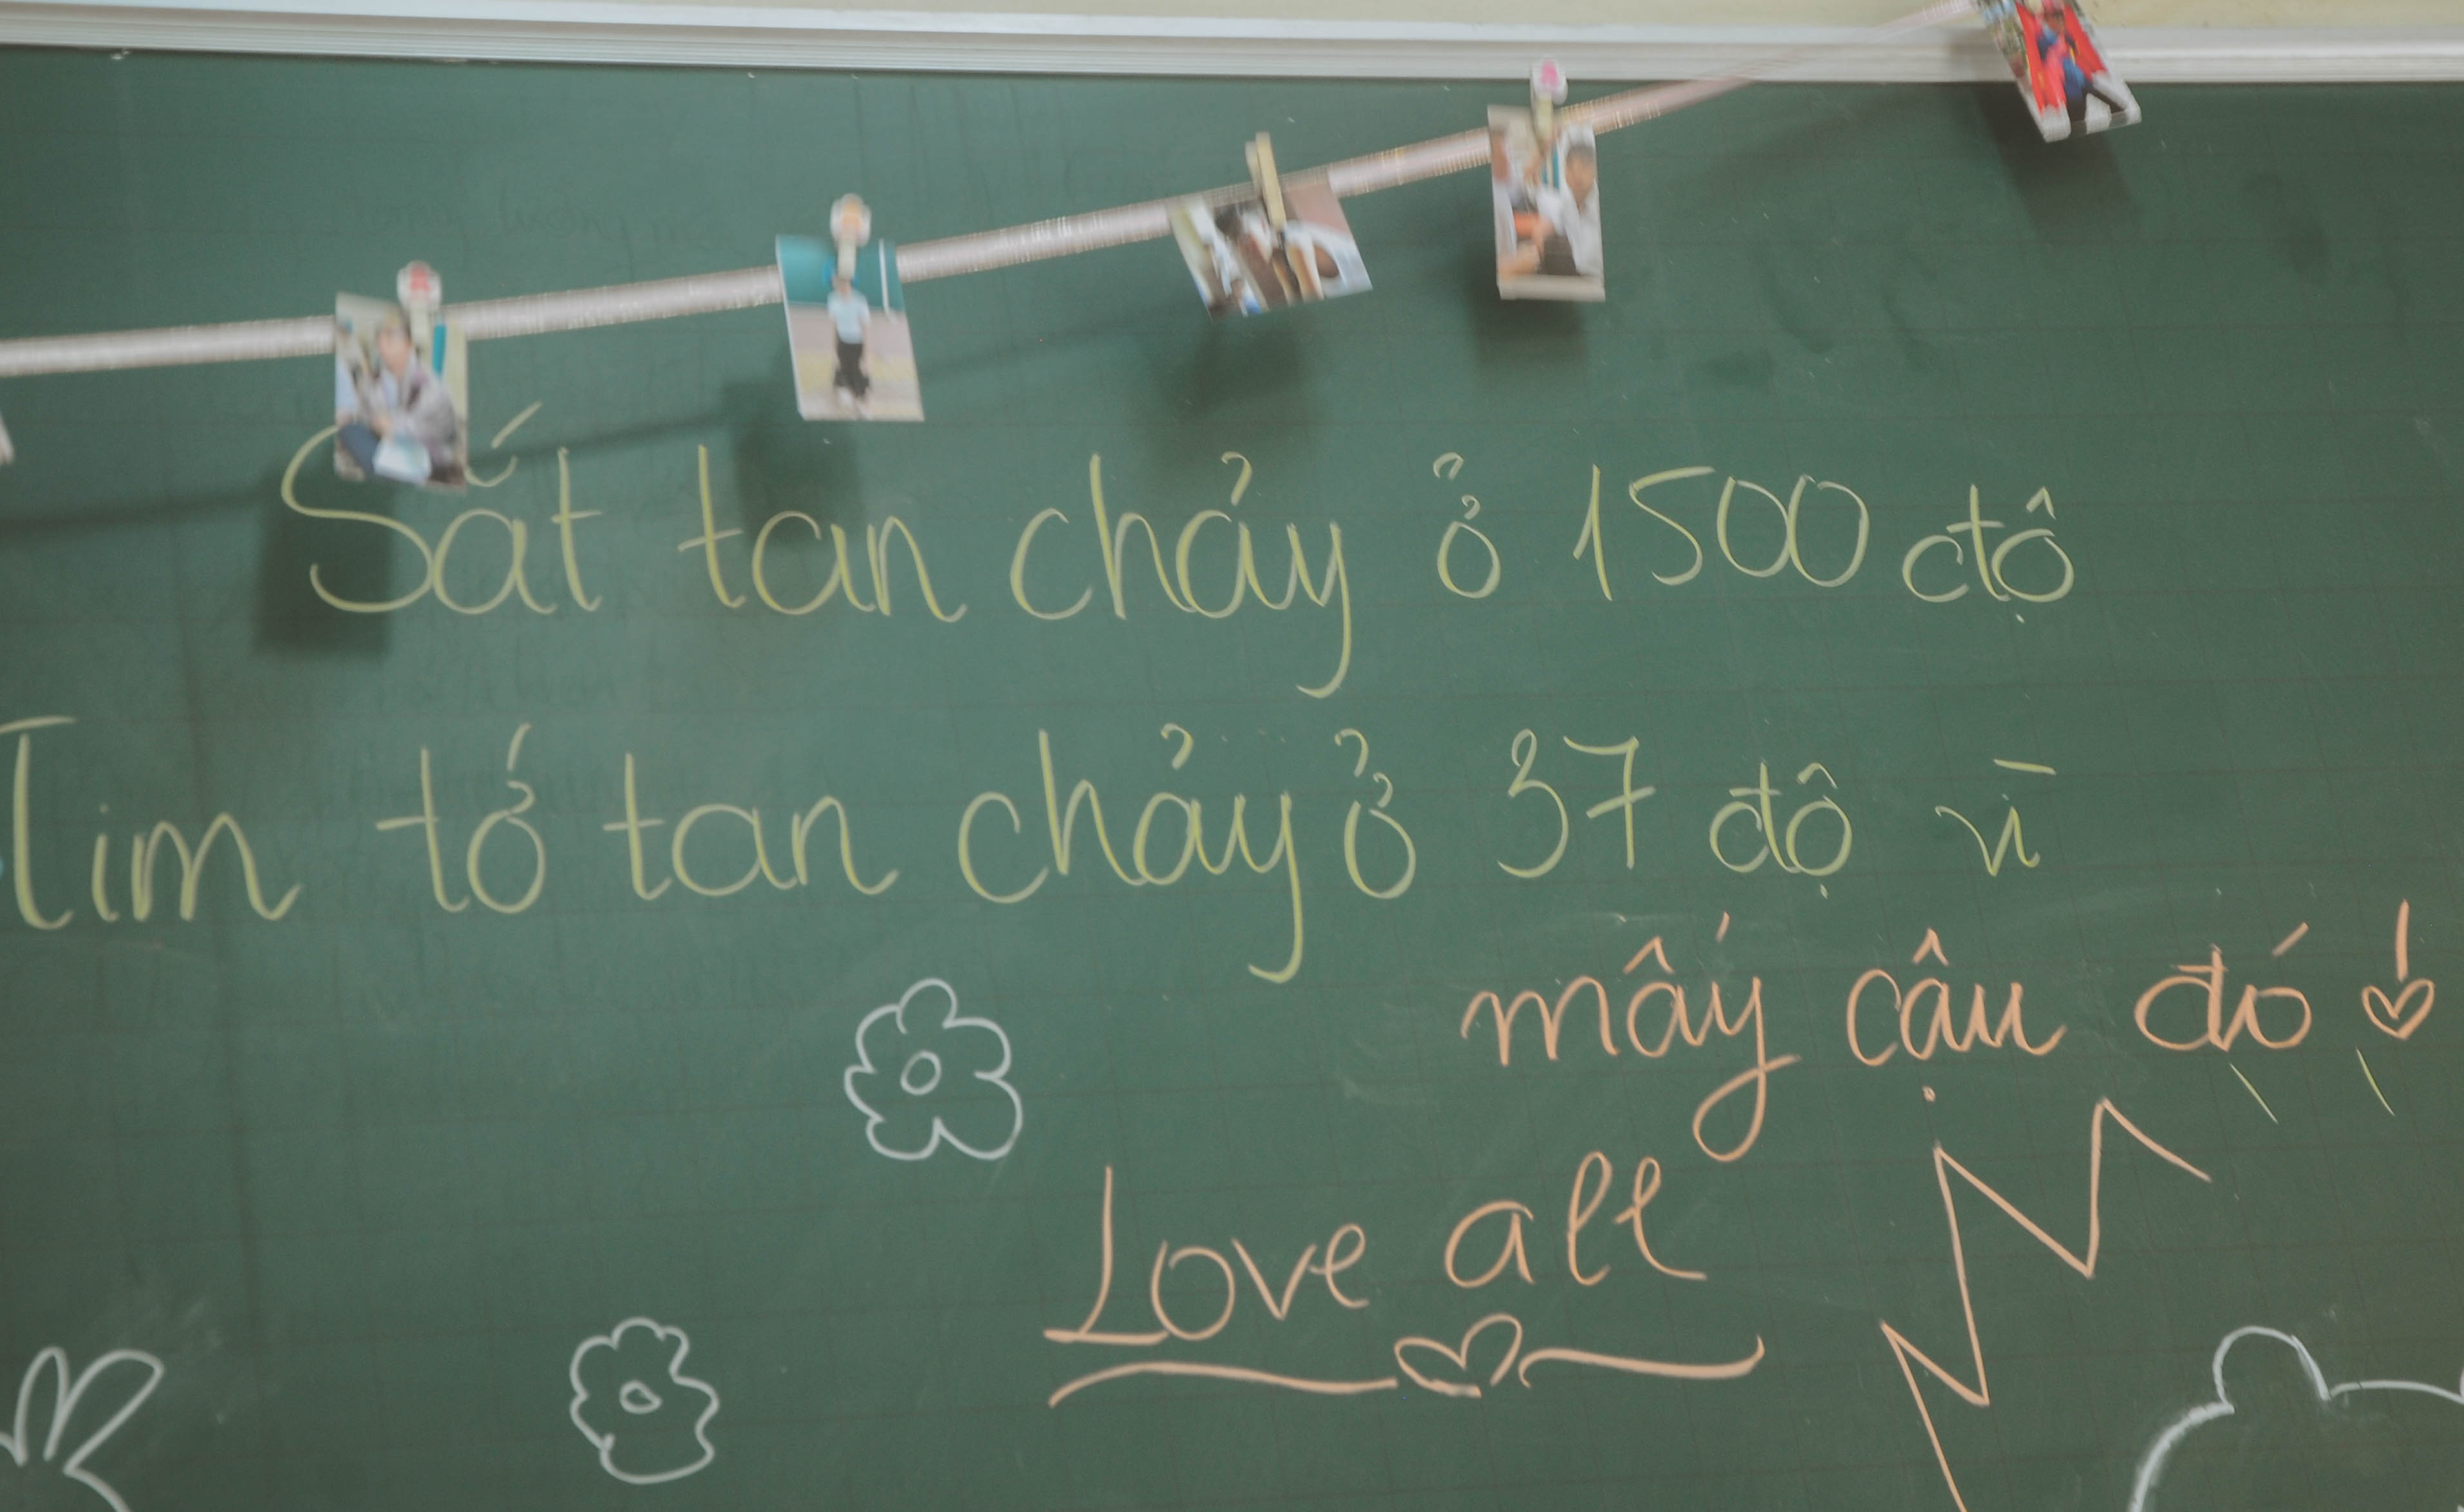 Sắt tan chảy ở 1500 độ
Tim tớ tan chảy ở 37 độ vì
mấy cậu đó!
Love all